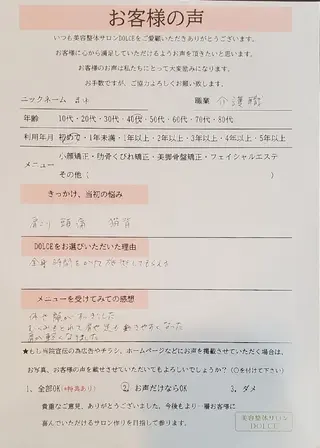 お客様の声
いつも美容整体サロンDOLCEをご愛顧いただきありがとうございます。
お客様に心から満足していただけるようお声を頂きたいと思います。
お客様のお声は私たちにとって大変励みになります。
お手数ですが、ご協力よろしくお願い致します。
ニックネーム 職業 介護職
年齢 10代・20代・30代・40代・50代・60代・70代・80代
利用年月 初めて・1年未満・1年以上・2年以上・3年以上・4年以上・5年以上
メニュー 小顔矯正・肋骨くびれ矯正・美脚骨盤矯正・フェイシャルエステ
その他（ ）
きっかけ、当初の悩み
肩こり 頭痛 猫背
DOLCEをお選びいただいた理由
全身 時間をかけて施術してもらえる
メニューを受けてみての感想
体や顔がスッキリした
むくみもとれて 足も動きやすくなった
肩が軽くなりました
★もし当院宣伝の為広告やチラシ、ホームページなどにお声を掲載させていただく場合は、
お写真、お客様の声を載せさせていただいてもよろしいでしょうか？（○を付けて下さい）
1. 全部OK（★特典あり） 2. お声だけならOK 3. ダメ
貴重なご意見、ありがとうございました。今後もより一層お客様に
喜んでいただけるサロン作りを目指して参ります。
美容整体サロン
DOLCE